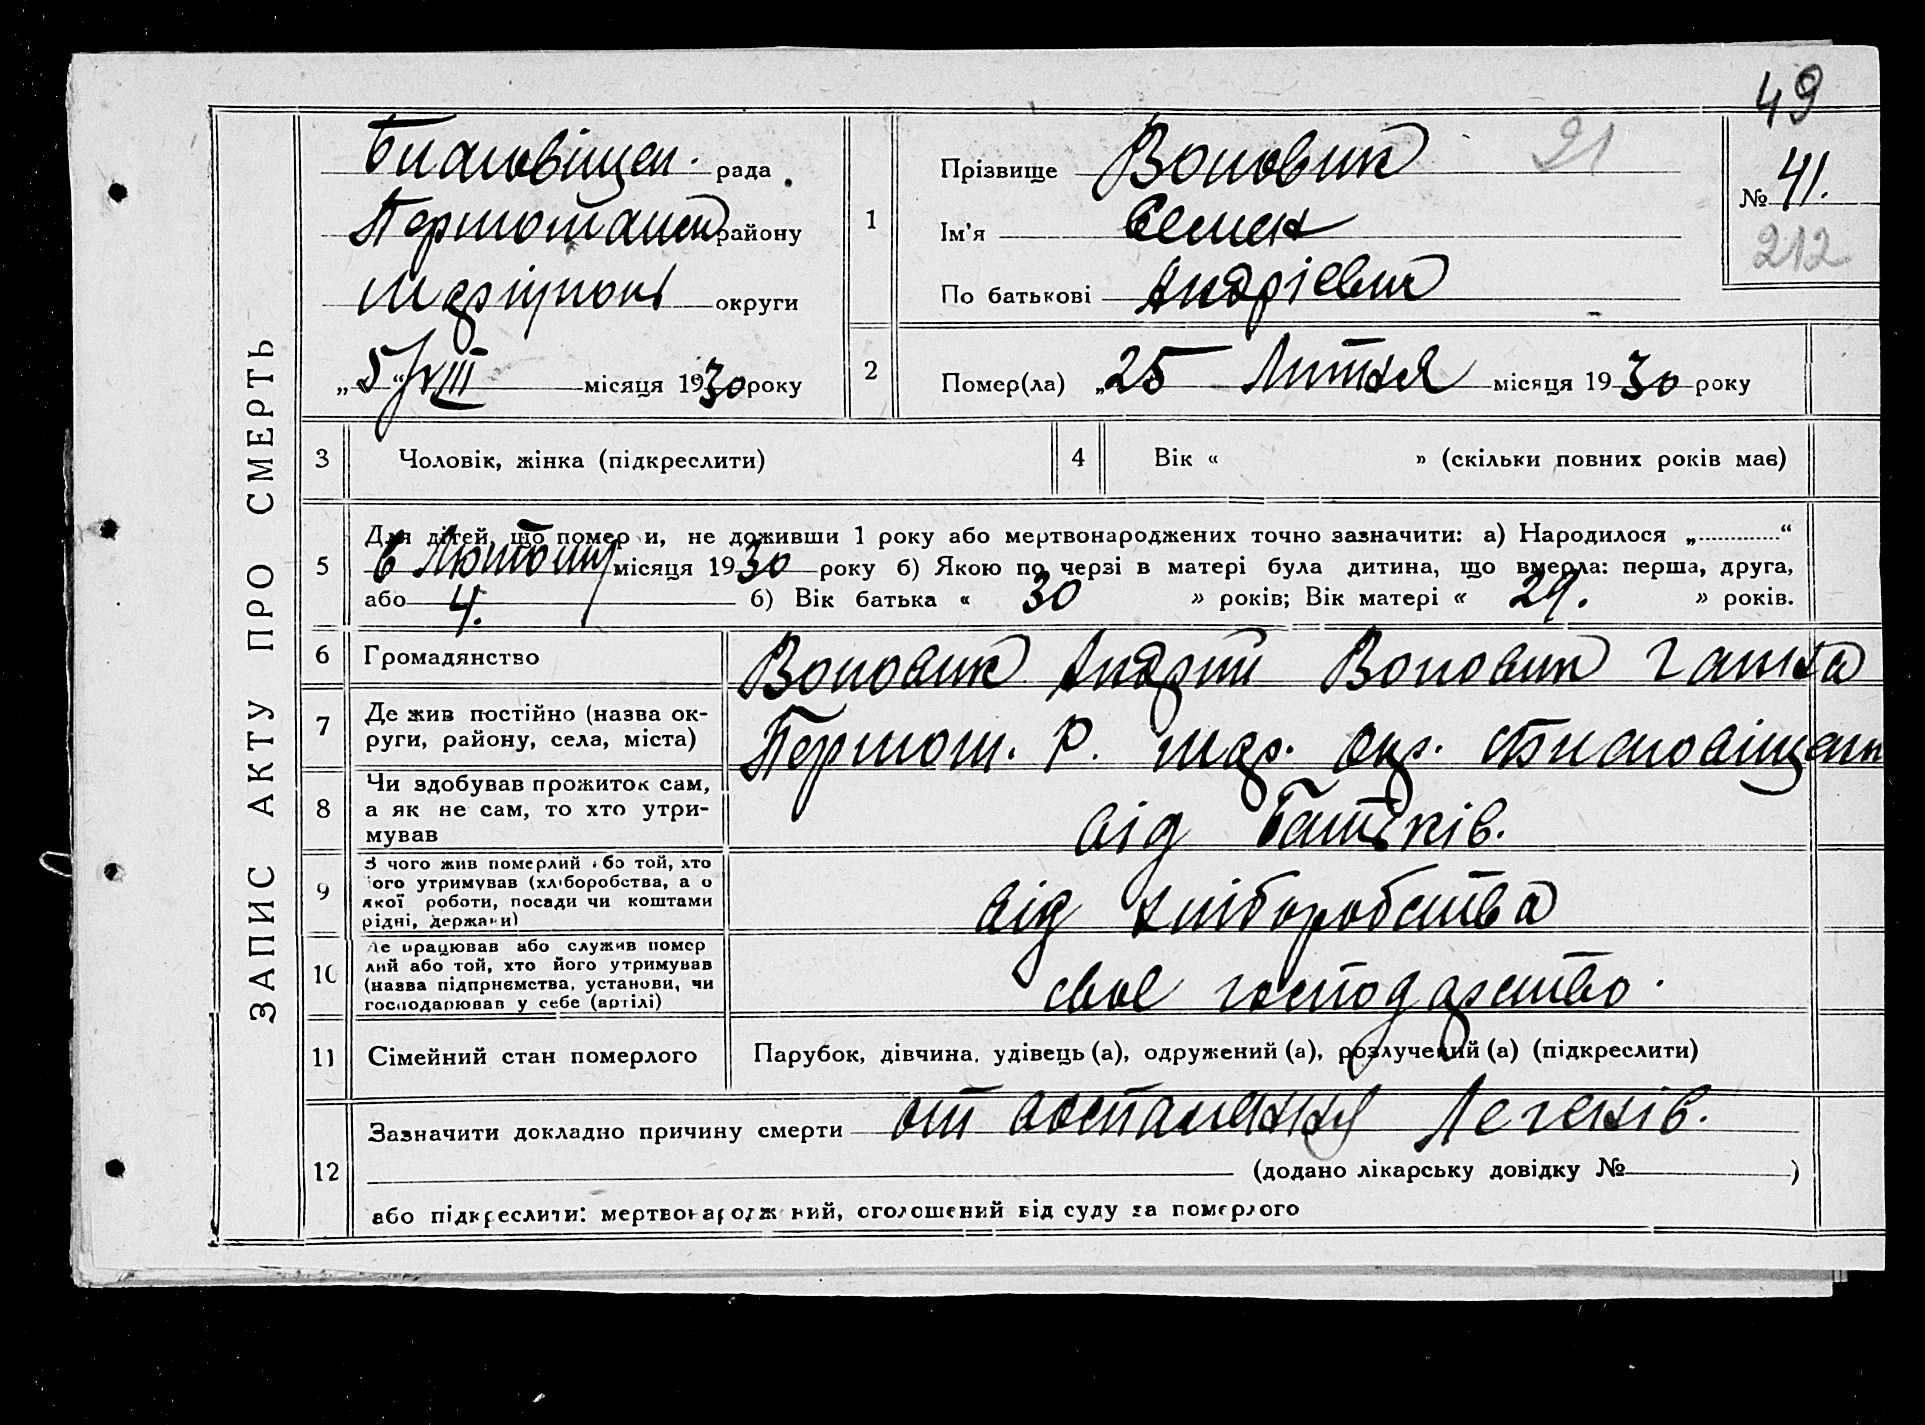 49
ЗАПИС АКТУ ПРО СМЕРТЬ
Благовіщен. рада
району
округи
„5“ VIII місяця 1930 року
1
Прізвище Воловик 21
Ім'я Семен
По батькові Андрієвич
№ 41.
212
2
Помер(ла) „25 Липня місяця 1930 року
3 Чоловік, жінка (підкреслити)
4 Вік « » (скільки повних років має)
5 Для дітей, що помер и, не доживши 1 року або мертвонароджених точно зазначити: а) Народилося „ “
6 місяця 1930 року б) Якою по черзі в матері була дитина, що вмерла: перша, друга,
або 4. б) Вік батька « 30 » років; Вік матері « 29. » років.
6 Громадянство Воловик Андрій Воловик Ганна
7 Де жив постійно (назва ок-
руги, району, села, міста)
Р. окр.
8 Чи здобував прожиток сам,
а як не сам, то хто утри-
мував
від Батьків.
9 З чого жив померлий або той, хто
ого утримував (хліборобства, а о
якої роботи, посади чи коштами
рідні, держави)
від хліборобства
10 Де працював або служив помер
лий або той, хто його утримував
(назва підприємства, установи, чи
господарював у себе (артілі)
своє господарство.
11 Сімейний стан померлого Парубок, дівчина, удівець (а), одружений (а), розлучений (а) (підкреслити)
12 Зазначити докладно причину смерти от воспаления Легенів.
(додано лікарську довідку № )
або підкреслити: мертвонароджений, оголошений від суду за померлого